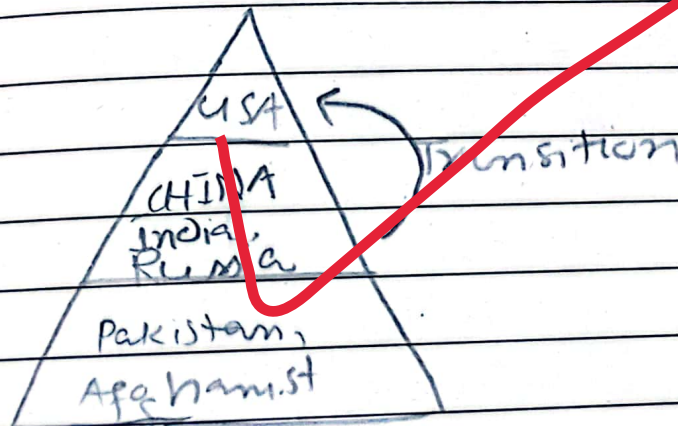 USA
Transition
CHINA
India,
Russia
Pakistan,
Afghanist